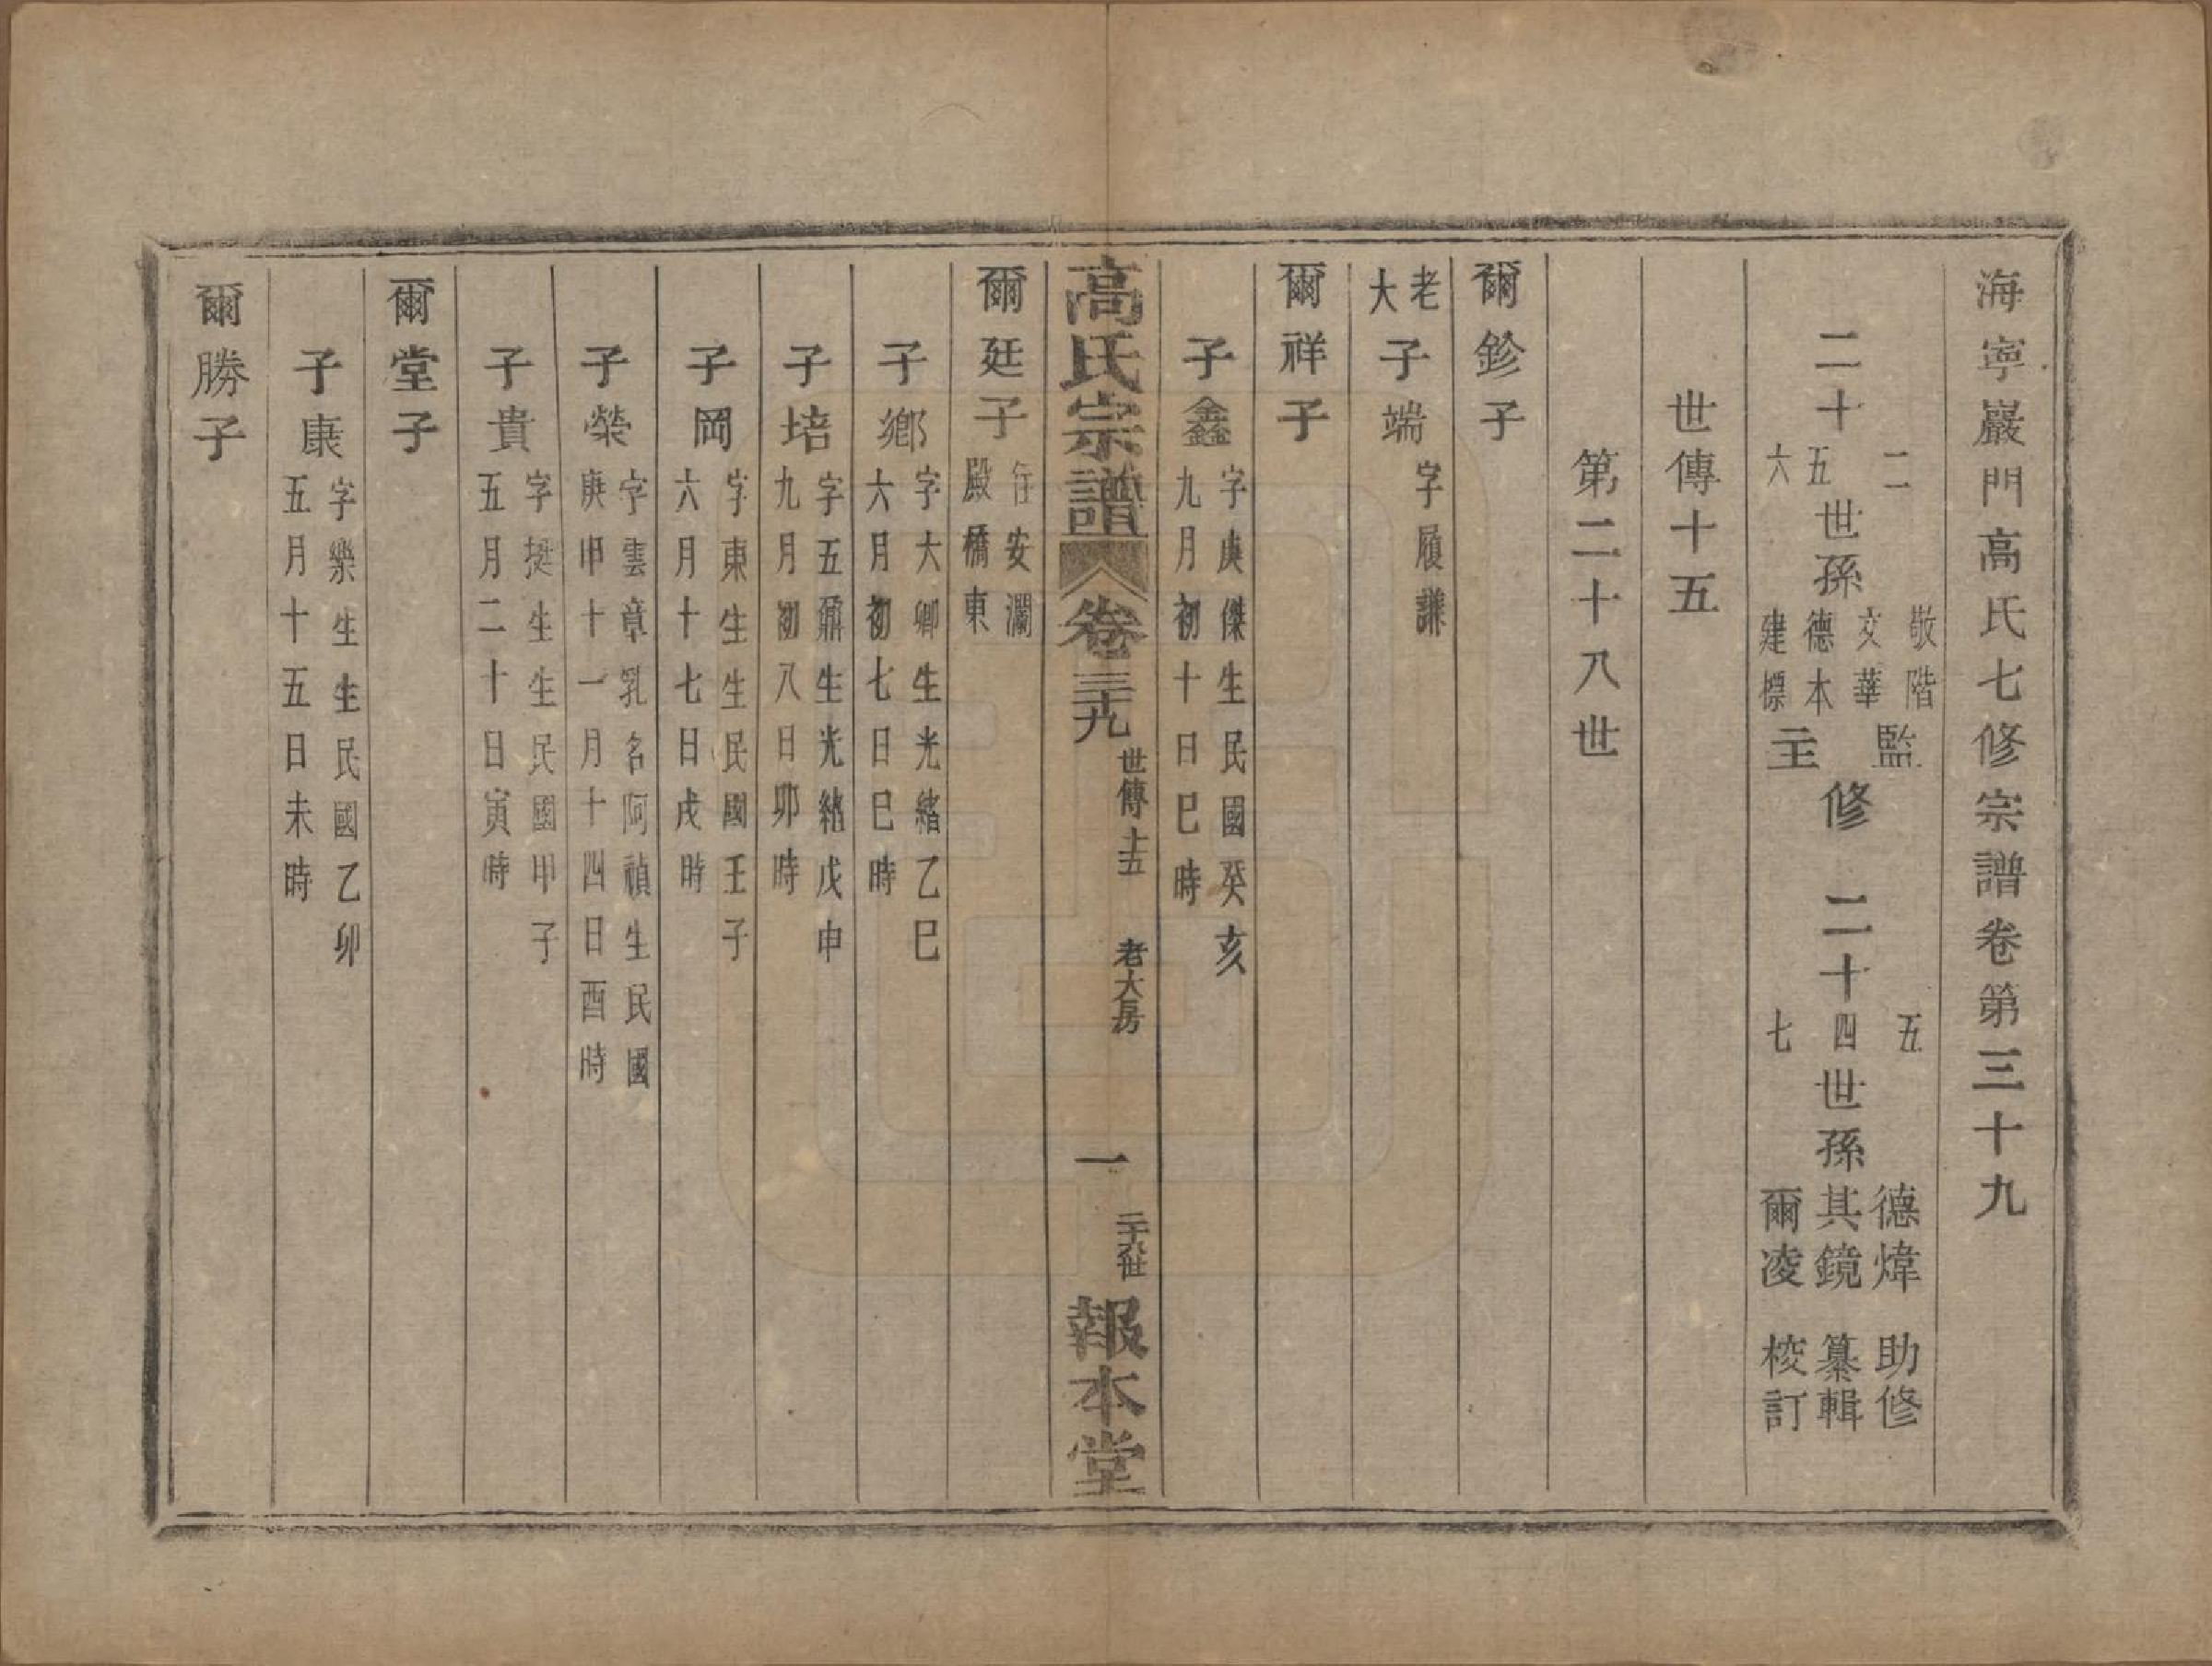 海寧巖門高氏七修宗譜卷第三十九
二十二五六世孫敬階文華德本建標監主修
二十五四七世孫德煒其鏡爾凌助修纂輯校訂
世傳十五
第二十八世
爾鉁子
老大
子端 字履謙
爾祥子
子鑫 字庚傑生民國癸亥
九月初十日巳時
高氏宗譜 卷三十九 世傳十五 老大房 一 二十八世 報本堂
爾廷子 住安瀾
殿橋東
子鄉 字大卿生光緒乙巳
六月初七日巳時
子培 字五鼐生光緒戊申
九月初八日卯時
子岡 字東生生民國壬子
六月十七日戌時
子榮 字雲章乳名阿禎生民國
庚申十一月十四日酉時
子貴 字挺生生民國甲子
五月二十日寅時
爾堂子
子康 字樂生生民國乙卯
五月十五日未時
爾勝子